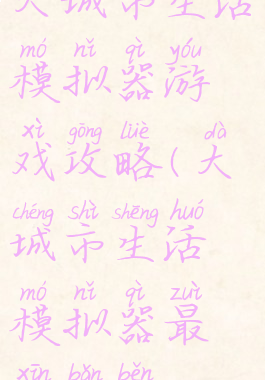 大城市生活
mó nǐ qì yóu
模拟器游
xì gōng lüè dà
戏攻略(大
chéng shì shēng huó
城市生活
mó nǐ qì zuì
模拟器最
xīn bǎn běn